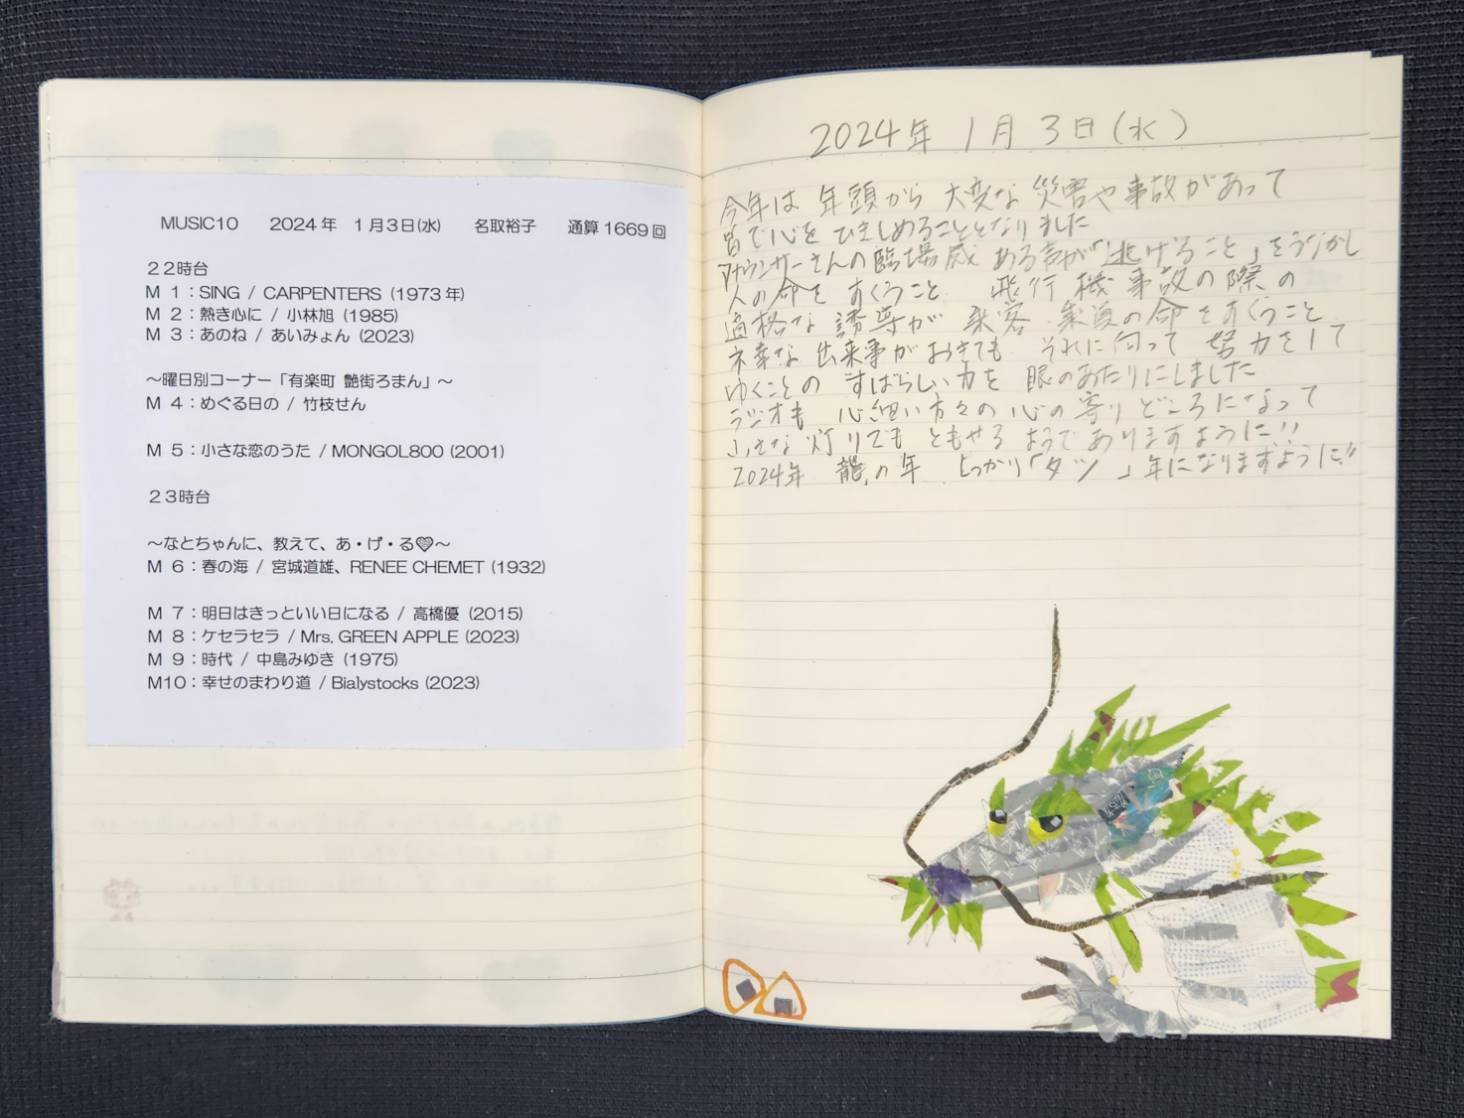 MUSIC10 2024年 1月3日(水) 名取裕子 通算1669回
22時台
M 1：SING / CARPENTERS (1973年)
M 2：熱き心に / 小林旭 (1985)
M 3：あのね / あいみょん (2023)
～曜日別コーナー「有楽町 艶街ろまん」～
M 4：めぐる日の / 竹枝せん
M 5：小さな恋のうた / MONGOL800 (2001)
23時台
～なとちゃんに、教えて、あ・げ・る♡～
M 6：春の海 / 宮城道雄、RENEE CHEMET (1932)
M 7：明日はきっといい日になる / 高橋優 (2015)
M 8：ケセラセラ / Mrs. GREEN APPLE (2023)
M 9：時代 / 中島みゆき (1975)
M10：幸せのまわり道 / Bialystocks (2023)
2024年 1月 3日(水)
今年は 年頭から 大変な 災害や事故があって
皆で心を ひきしめることとなりました
アナウンサーさんの臨場感 ある声が「逃げること」をうながし
人の命を すくうこと 飛行機事故の際の
適格な 誘導が 乗客 乗員の命をすくうこと
不幸な 出来事がおきても それに向って 努力をして
ゆくことの すばらしい力を 眼のあたりにしました
ラジオも 心細い方々の 心の寄りどころになって
小さな 灯りでも ともせる ようでありますように!!
2024年 龍の年 しっかり「タツ」年になりますように!!